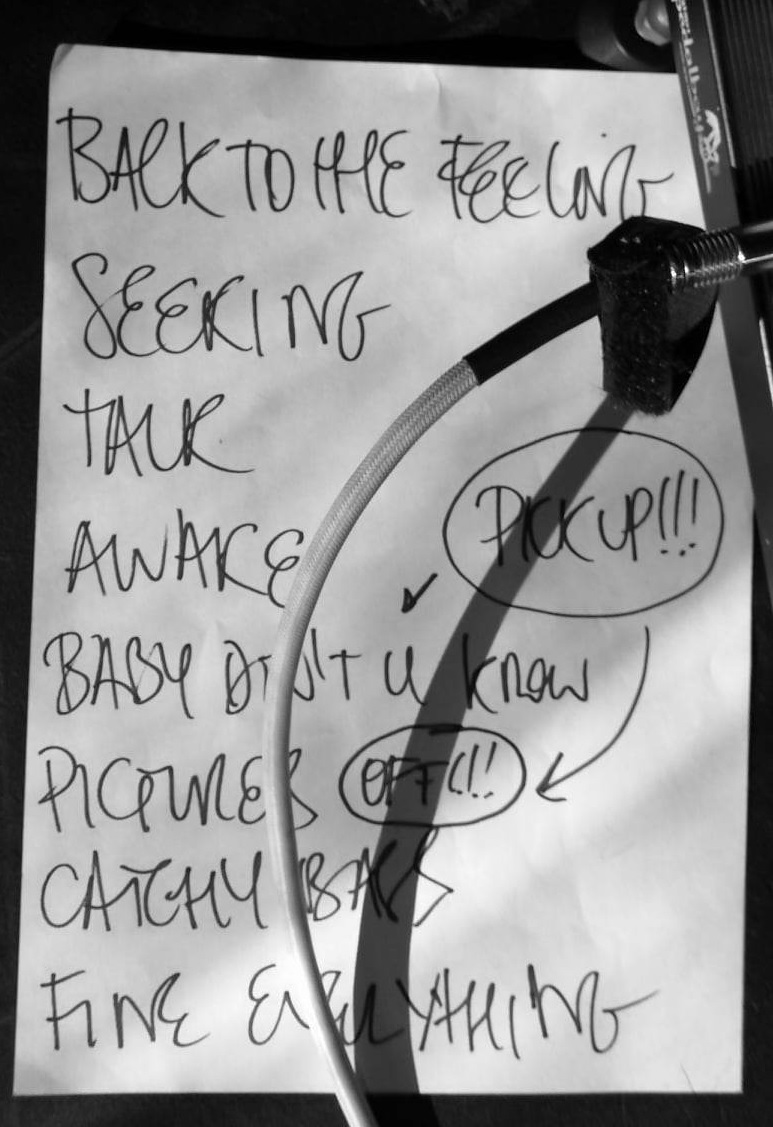 BACK TO THE FEELING
SEEKING
TALK
AWAKE
PICK UP!!!
BABY DON'T U KNOW
PICTURES OFF!!!
CATCHY BARS
FINE EVERYTHING